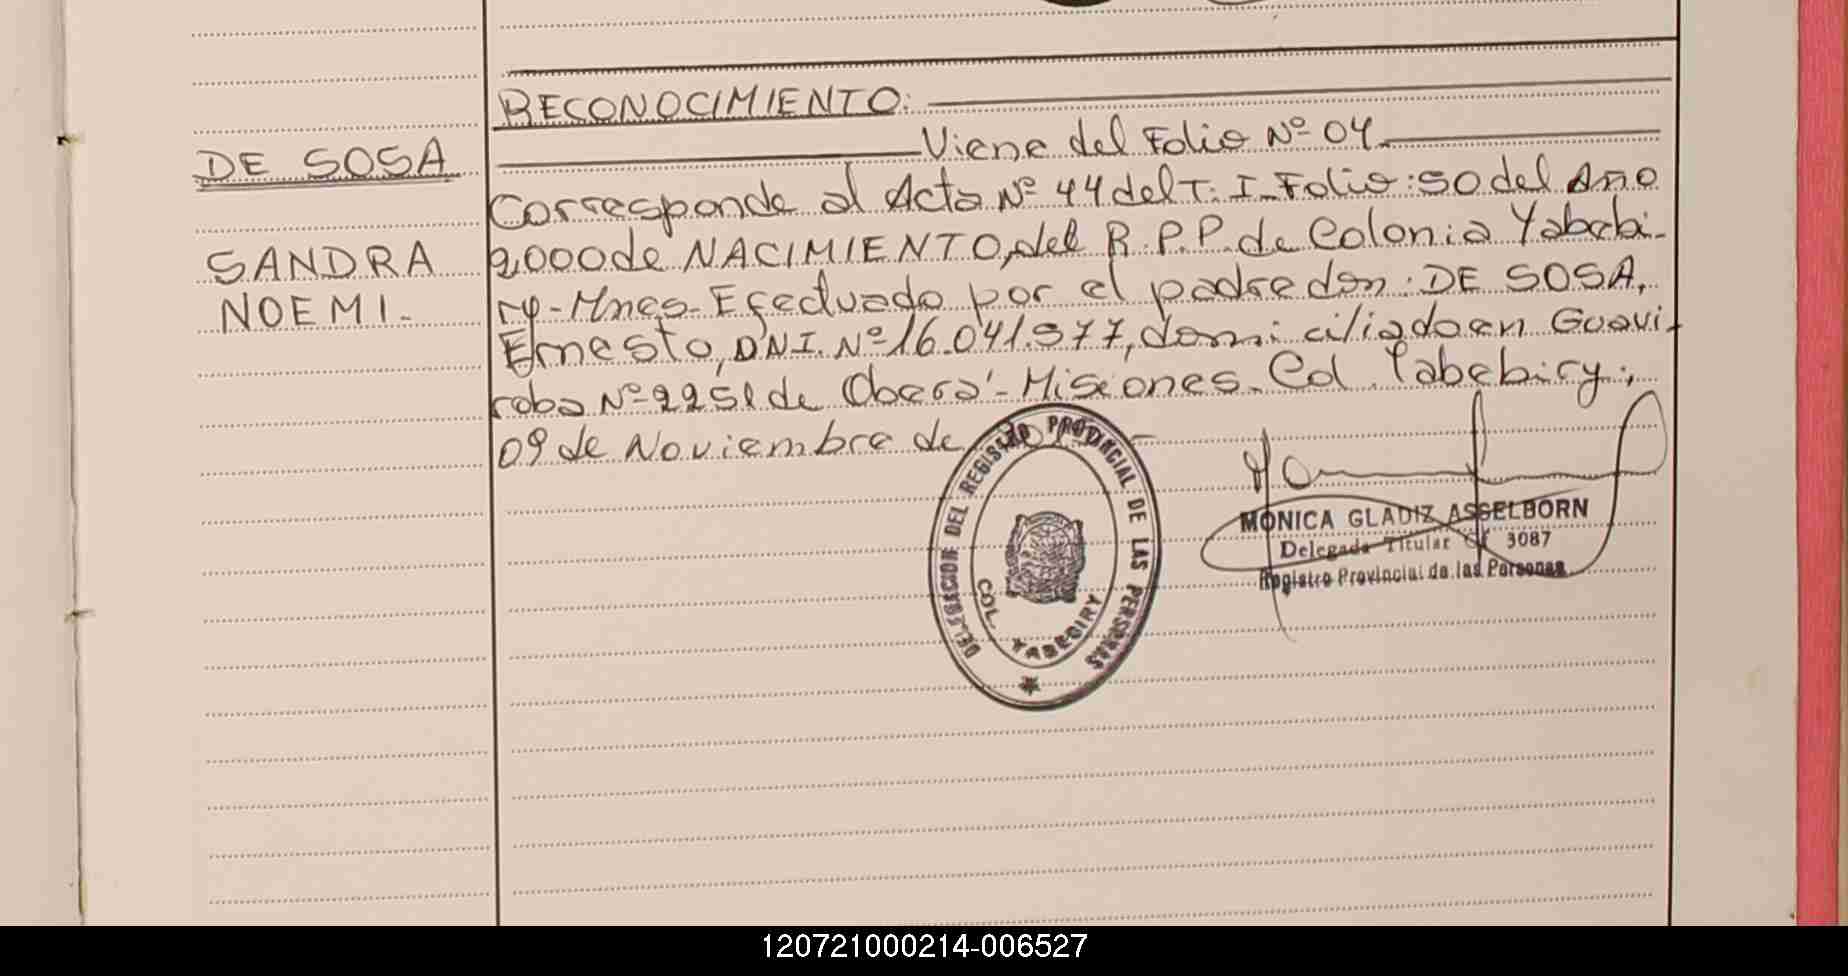 RECONOCIMIENTO:
Viene del Folio Nº 04.
DE SOSA
Corresponde al Acta Nº 44 del T. I. Folio: 50 del Año
SANDRA
2,000 de NACIMIENTO, del R.P.P. de Colonia Yabebi-
NOEMI.-
ry-Mnes- Efectuado por el padre don: DE SOSA,
Ernesto, DNI. Nº 16.041.977, domiciliado en Guavi-
roba Nº 2251 de Oberá - Misiones. Col. Yabebiry;
09 de Noviembre de
DELEGACION DEL REGISTRO PROVINCIAL DE LAS PERSONAS
COL. YABEBIRY
MONICA GLADIZ ASSELBORN
Delegada Titular Cf 3087
Registro Provincial de las Personas
120721000214-006527